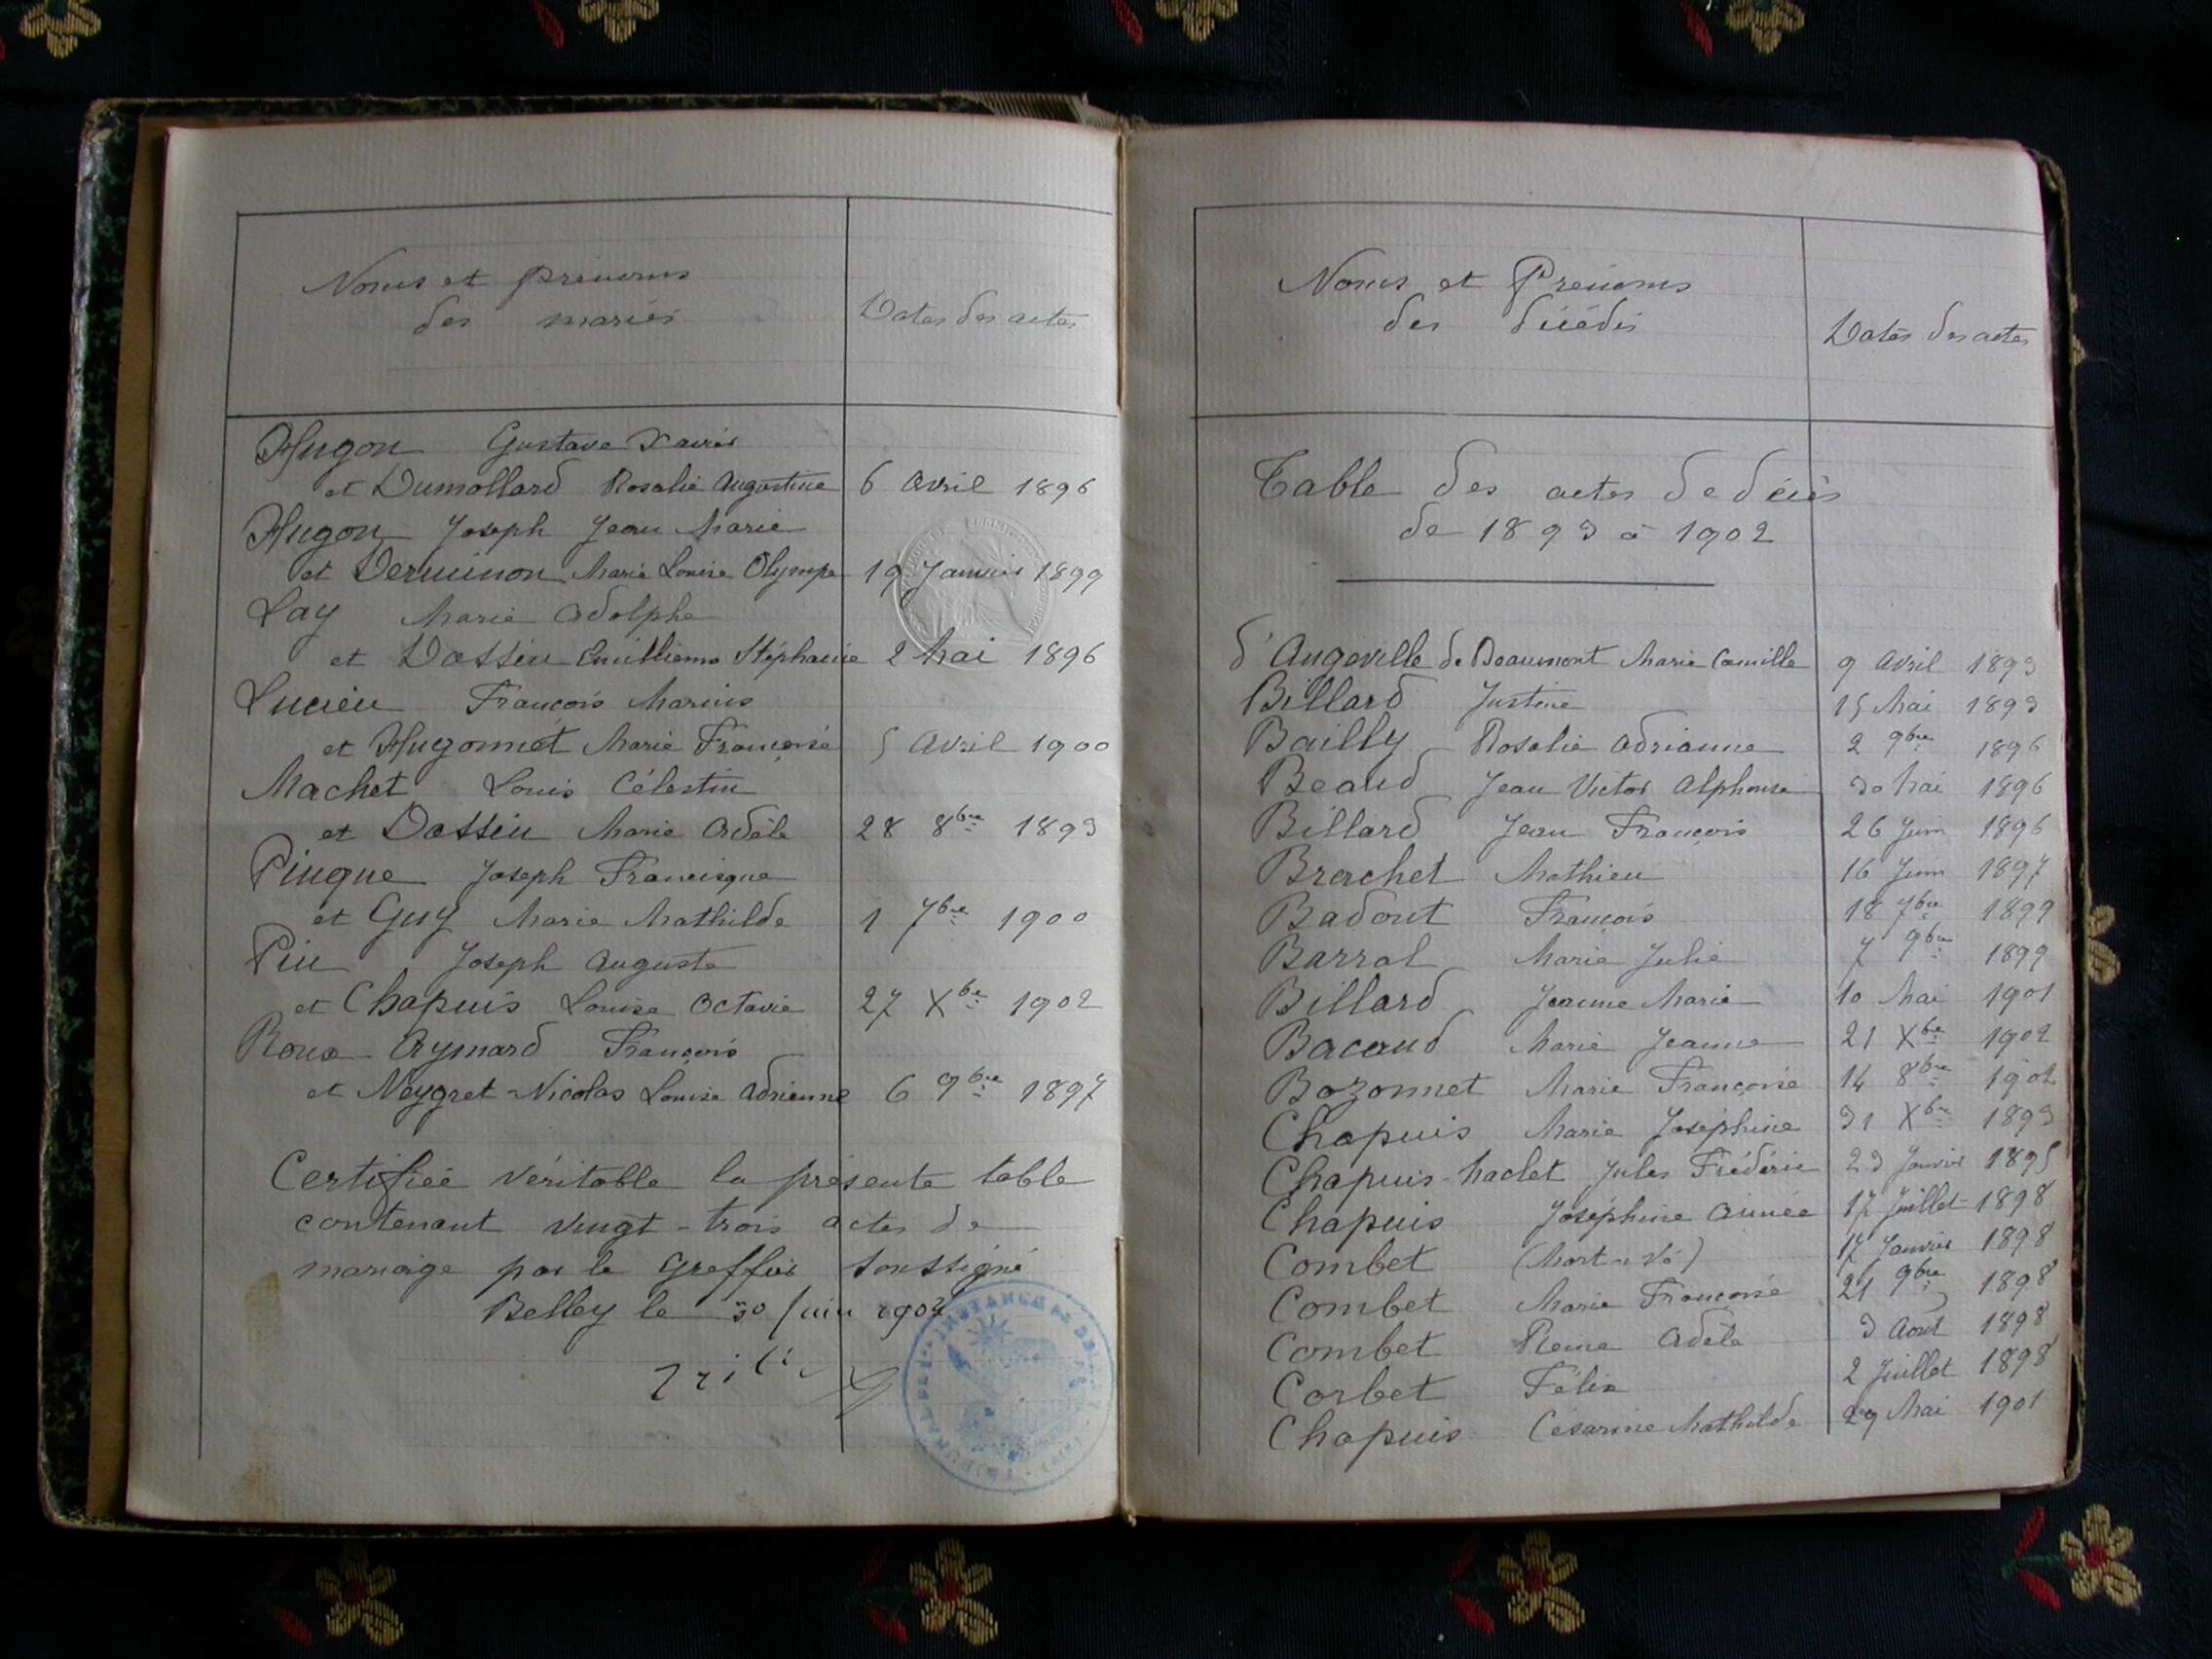 Noms et prénoms
des mariés
Dates des actes
Hugon Gustave Xavier
et Dumollard Rosalie Augustine 6 Avril 1896
Hugon Joseph Jean Marie
et Derminon Marie Louise Olympe 19 Janvier 1899
Lay Marie Adolphe
et Dossin Emillienne Stéphanie 2 Mai 1896
Lucien François Marius
et Hugonnet Marie Françoise 5 Avril 1900
Machet Louis Célestin
et Dossin Marie Adèle 28 8bre 1893
Pinque Joseph Francisque
et Guy Marie Mathilde 1 7bre 1900
Pin Joseph Auguste
et Chapuis Louise Octavie 27 Xbre 1902
Roux Aymard François
et Neygret-Nicolas Louise Adrienne 6 9bre 1897
Certifiée véritable la présente table
contenant vingt-trois actes de
mariage par le Greffier soussigné
Belley le 30 Juin 1903
Noms et Prénoms
des décédés
Dates des actes
Table des actes de décès
de 1893 à 1902
d'Angeville de Beaumont Marie Camille 9 Avril 1893
Billard Justine 15 Mai 1893
Bailly Rosalie Adrianne 2 9bre 1896
Beaud Jean Victor Alphonse 30 Mai 1896
Billard Jean François 26 Juin 1896
Brachet Mathieu 16 Juin 1897
Badout François 18 7bre 1899
Barral Marie Julie 7 9bre 1899
Billard Jeanne Marie 10 Mai 1901
Bacaud Marie Jeanne 21 Xbre 1902
Bozonnet Marie Françoise 14 8bre 1902
Chapuis Marie Joséphine 31 Xbre 1893
Chapuis-Maclet Jules Frédéric 23 Janvier 1895
Chapuis Joséphine Aimée 17 Juillet 1898
Combet (Mort-né) 17 Janvier 1898
Combet Marie Françoise 21 9bre 1898
Combet Reine Adèle 3 Août 1898
Corbet Félix 2 Juillet 1898
Chapuis Césarine Mathilde 29 Mai 1901